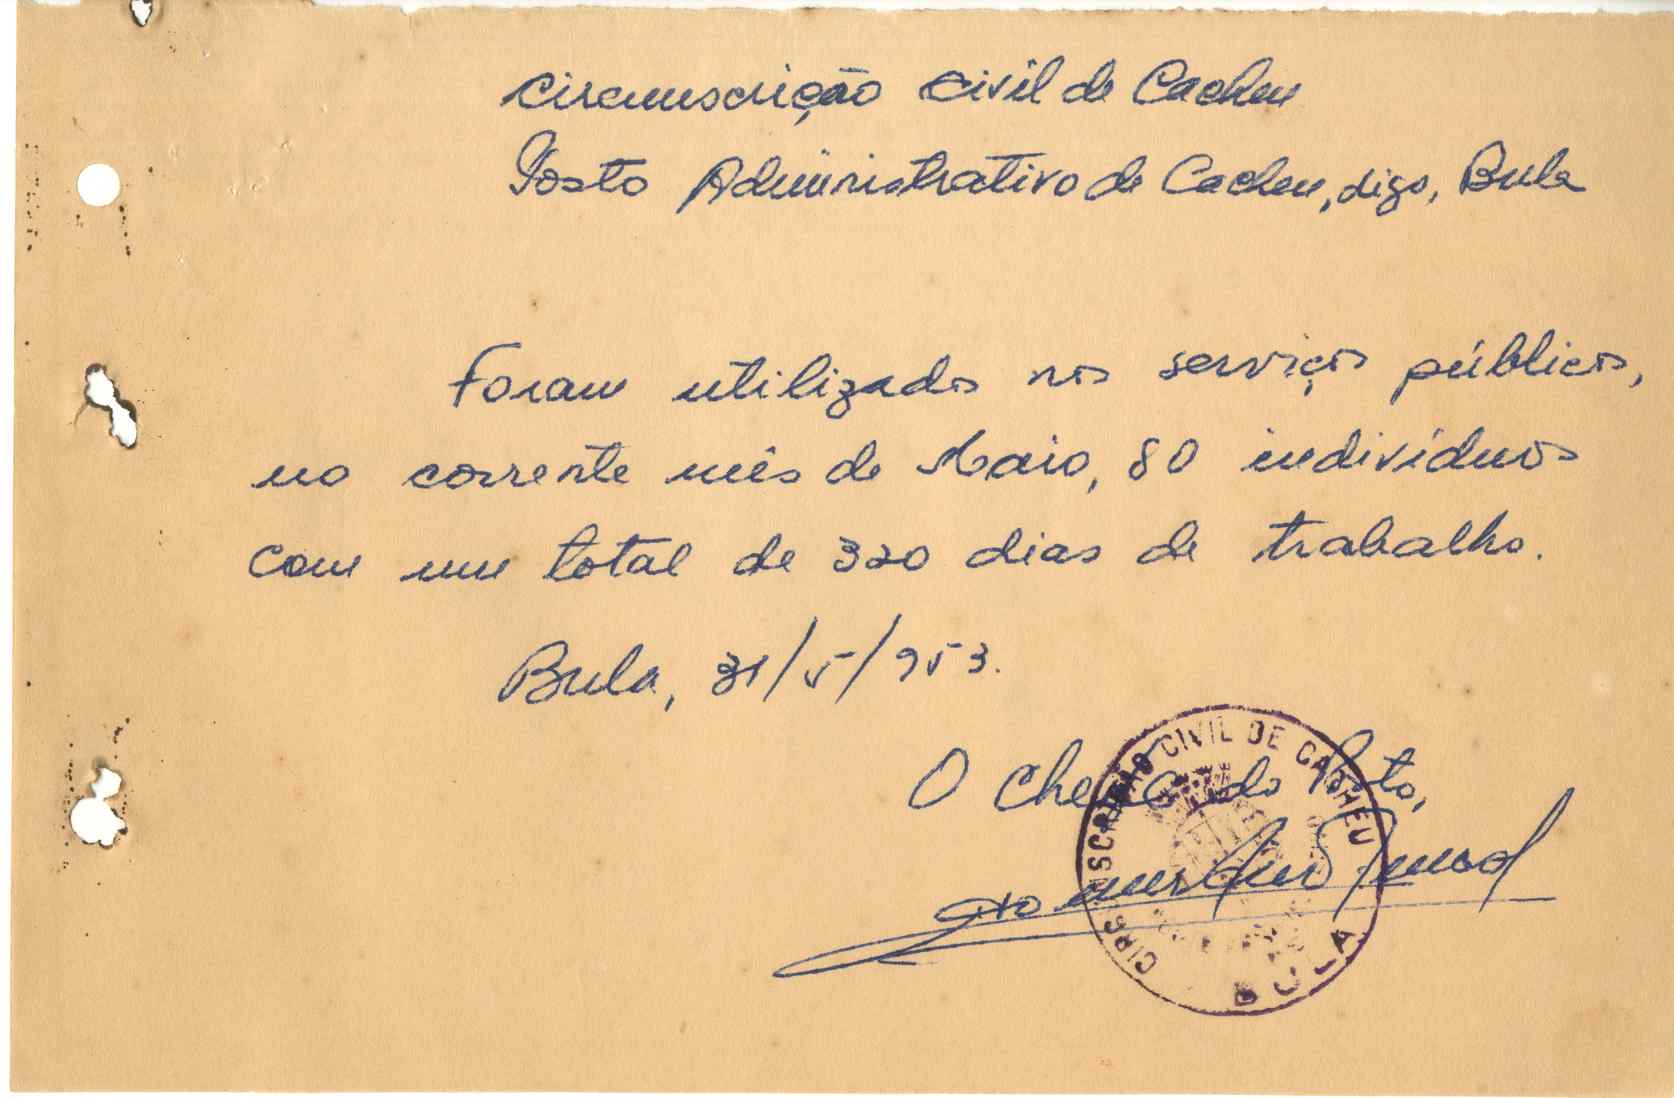 Circunscrição Civil de Cacheu
Posto Administrativo de Cacheu, digo, Bula
Foram utilizados nos serviços públicos,
no corrente mês de Maio, 80 indivíduos
com um total de 320 dias de trabalho.
Bula, 31/5/953.
O Chefe do Posto,
CIRCUNSCRIÇÃO CIVIL DE CACHEU
BULA